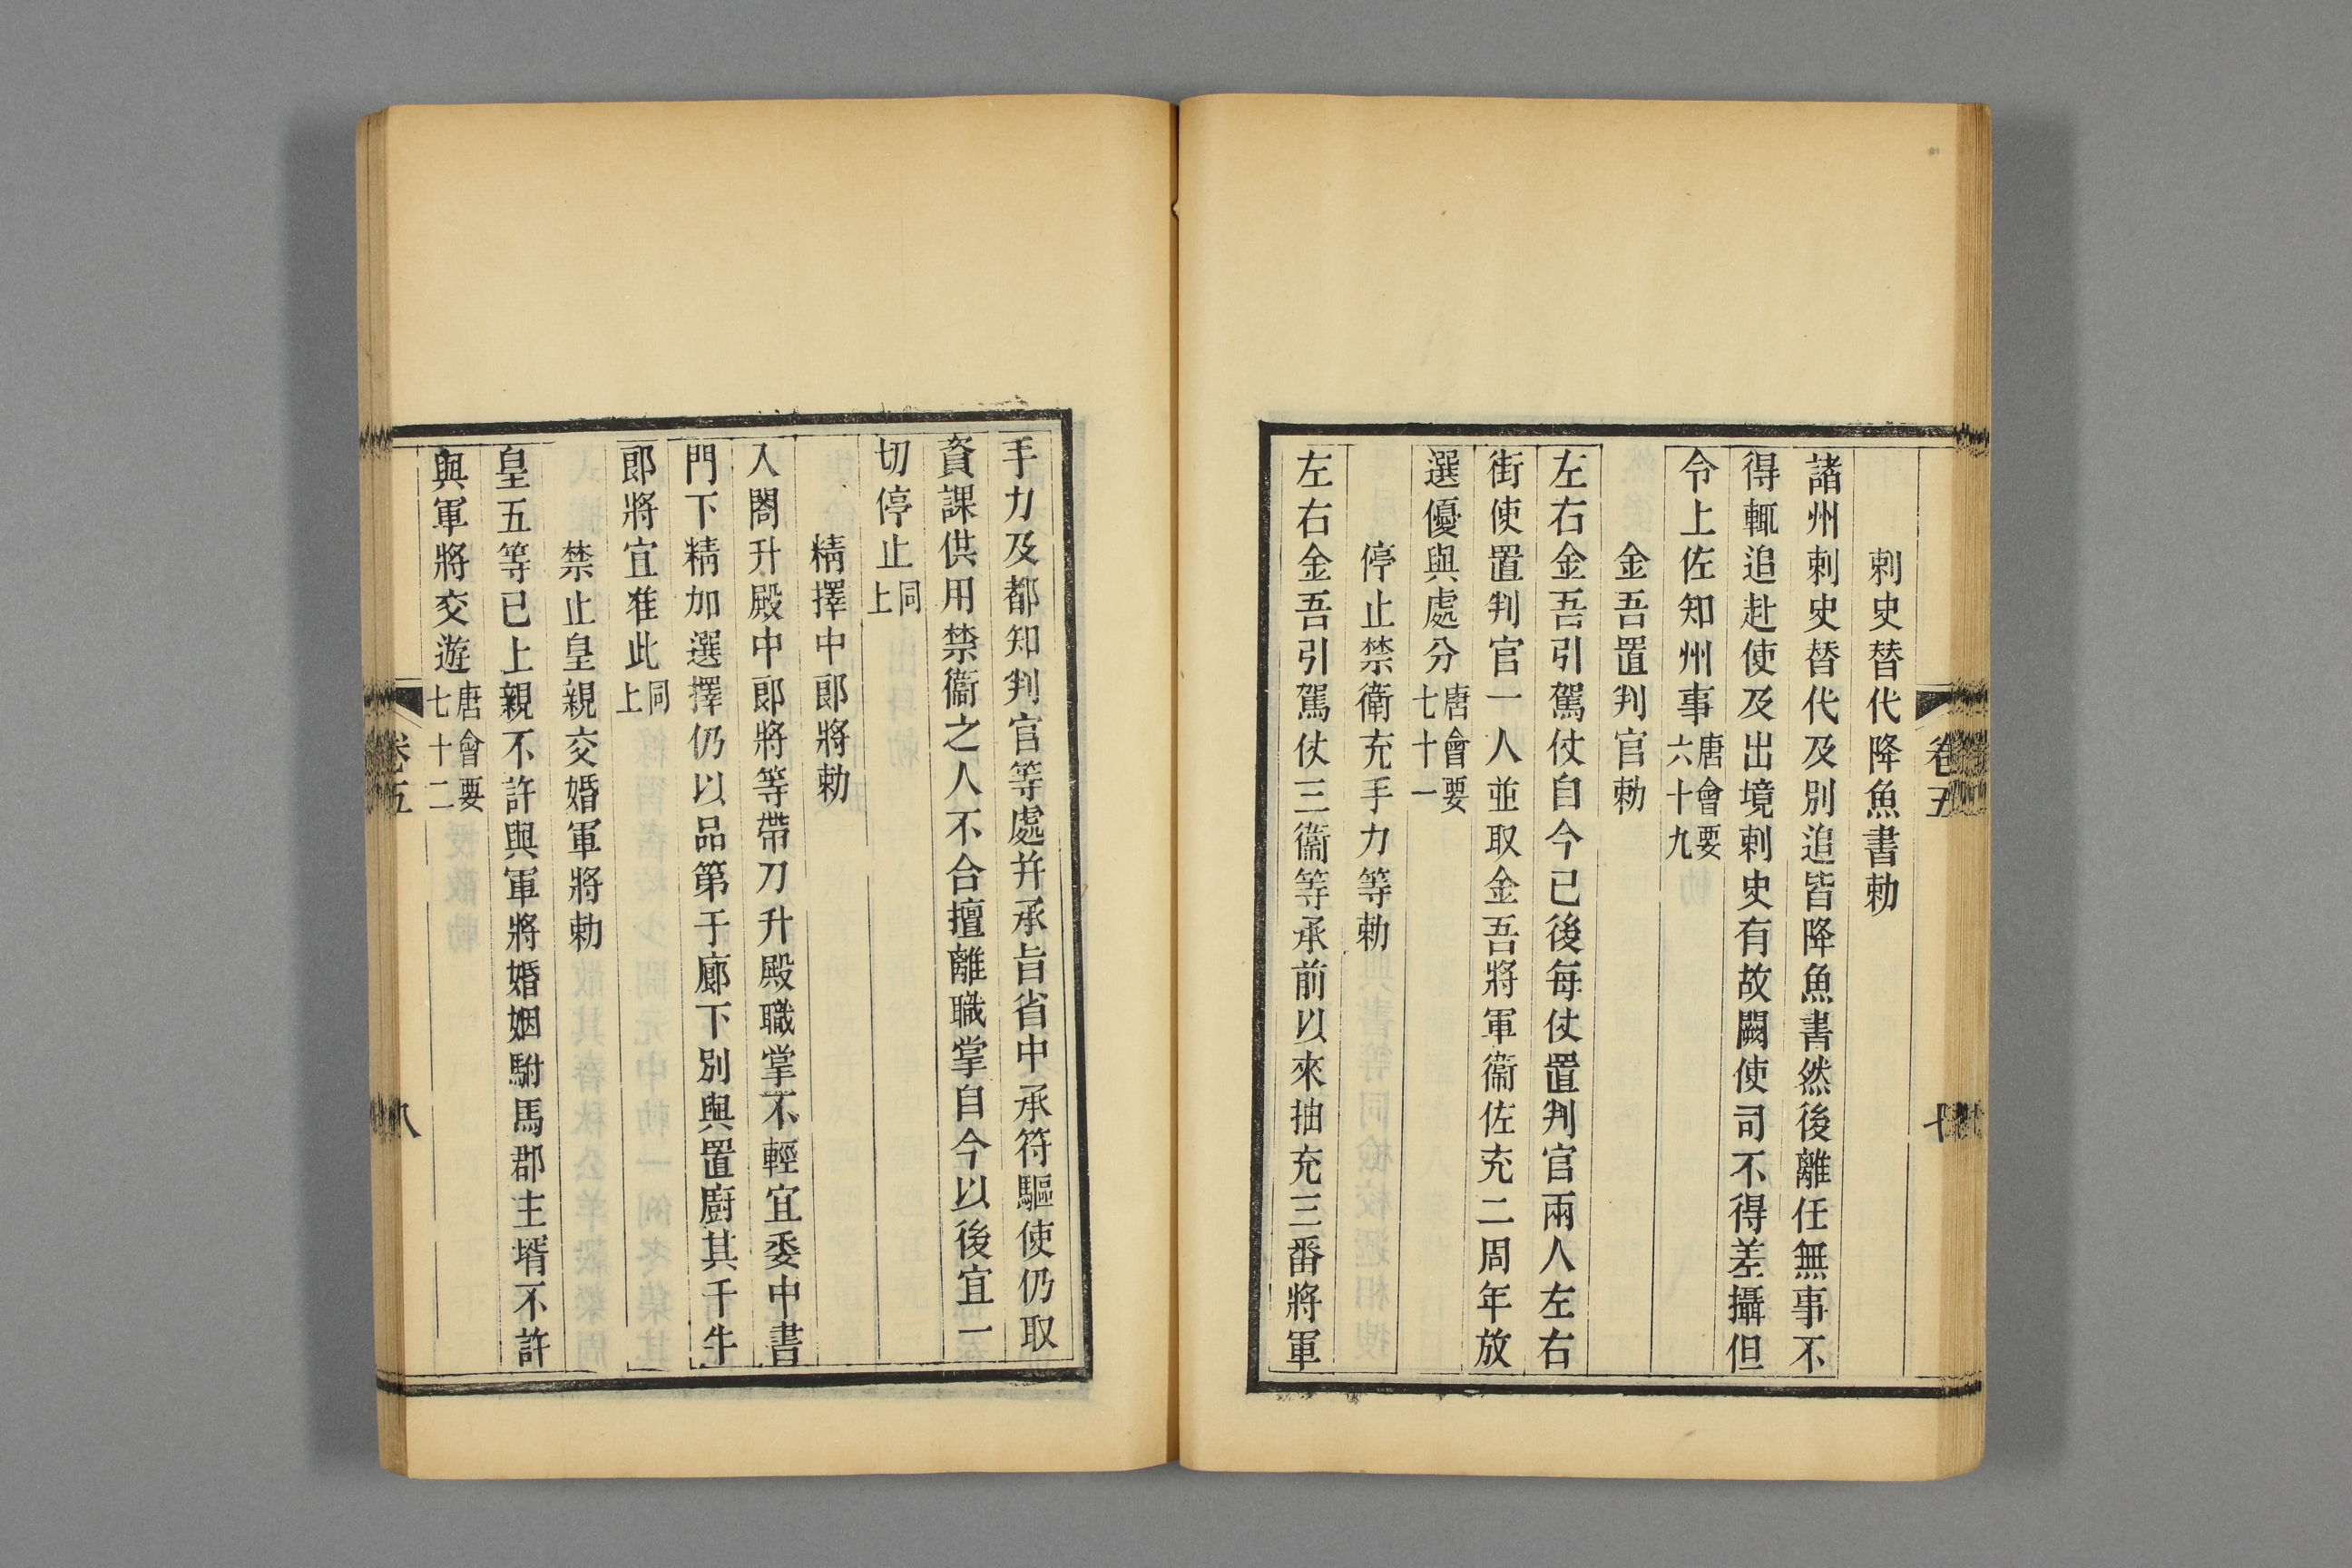 刺史替代降魚書勅
諸州刺史替代及別追皆降魚書然後離任無事不
得輒追赴使及出境刺史有故闕使司不得差攝但
令上佐知州事唐會要六十九
金吾置判官勅
左右金吾引駕仗自今已後每仗置判官兩人左右
街使置判官一人並取金吾將軍衞佐充二周年放
選優與處分唐會要七十一
停止禁衛充手力等勅
左右金吾引駕仗三衞等承前以來抽充三番將軍
手力及都知判官等處并承旨省中承符驅使仍取
資課供用禁衞之人不合擅離職掌自今以後宜一
切停止同上
精擇中郎將勅
入閤升殿中郎將等帶刀升殿職掌不輕宜委中書
門下精加選擇仍以品第于廊下別與置廚其千牛
郎將宜准此同上
禁止皇親交婚軍將勅
皇五等已上親不許與軍將婚姻駙馬郡主壻不許
與軍將交遊唐會要七十二
卷五
八
卷五